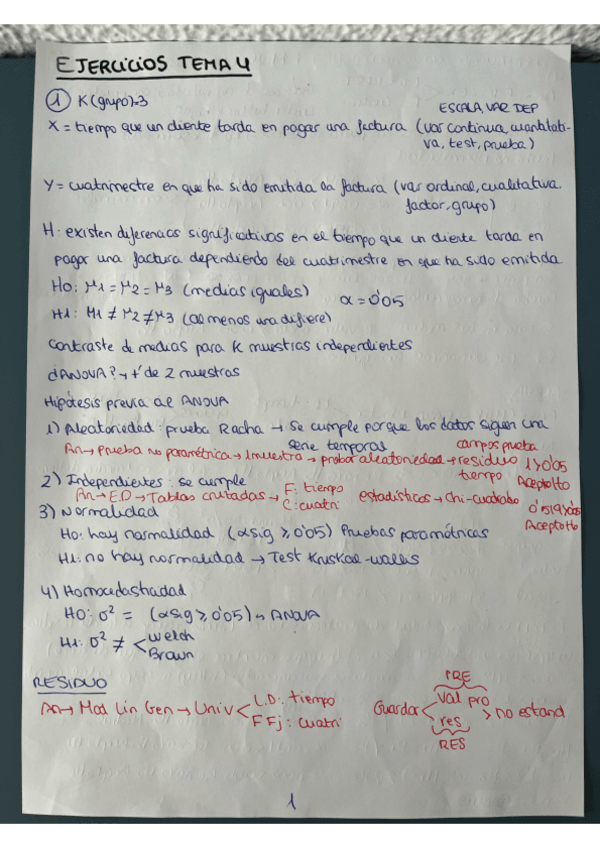 EJERCICIOS TEMA 4
① K(grupo)=3
ESCALA, VAR DEP
X = tiempo que un cliente tarda en pagar una factura (var continua, cuantitati-
va, test, prueba)
Y = cuatrimestre en que ha sido emitida la factura (var ordinal, cualitativa.
factor, grupo)
H. existen diferencias significativas en el tiempo que un cliente tarda en
pagar una factura dependiendo del cuatrimestre en que ha sido emitida
H0: μ1 = μ2 = μ3 (medias iguales) α = 0'05
H1: μ1 ≠ μ2 ≠ μ3 (al menos una difiere)
Contraste de medias para K muestras independientes
¿ANOVA? → + de 2 muestras
Hipótesis previa al ANOVA
1) Aleatoriedad: prueba Racha → Se cumple porque los datos siguen una
serie temporal
campos prueba
An → Prueba no paramétrica → 1 muestra → probar aleatoriedad → residuo 1>0'05
tiempo Acepto H0
2) Independientes: se cumple
An → E.D → Tablas cruzadas → F: tiempo
C: cuatri
estadísticos → Chi-cuadrado
Acepto H0
3) Normalidad
H0: hay normalidad (αsig ≥ 0'05) Pruebas paramétricas
H1: no hay normalidad → Test Kruskal-Wallis
4) Homocedasticidad
H0: σ² = (αsig ≥ 0'05) → ANOVA
H1: σ² ≠ < Welch
Brown
RESIDUO
An → Mod Lin Gen → Univ < L.D: tiempo
F Fj: cuatri
PRE
Guardar < val pro
res > no estand
RES
1